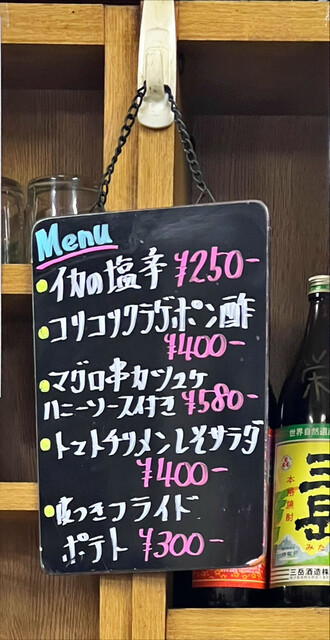 Menu
イカの塩辛 ¥250-
コリコリクラゲポン酢
¥400-
マグロ串カツ2ヶ
ハニーソース付き ¥580-
トマトチリメンしそサラダ
¥400-
皮つきフライド
ポテト ¥300-
世界自然遺産
本格焼酎
三岳
みた
三岳酒造株